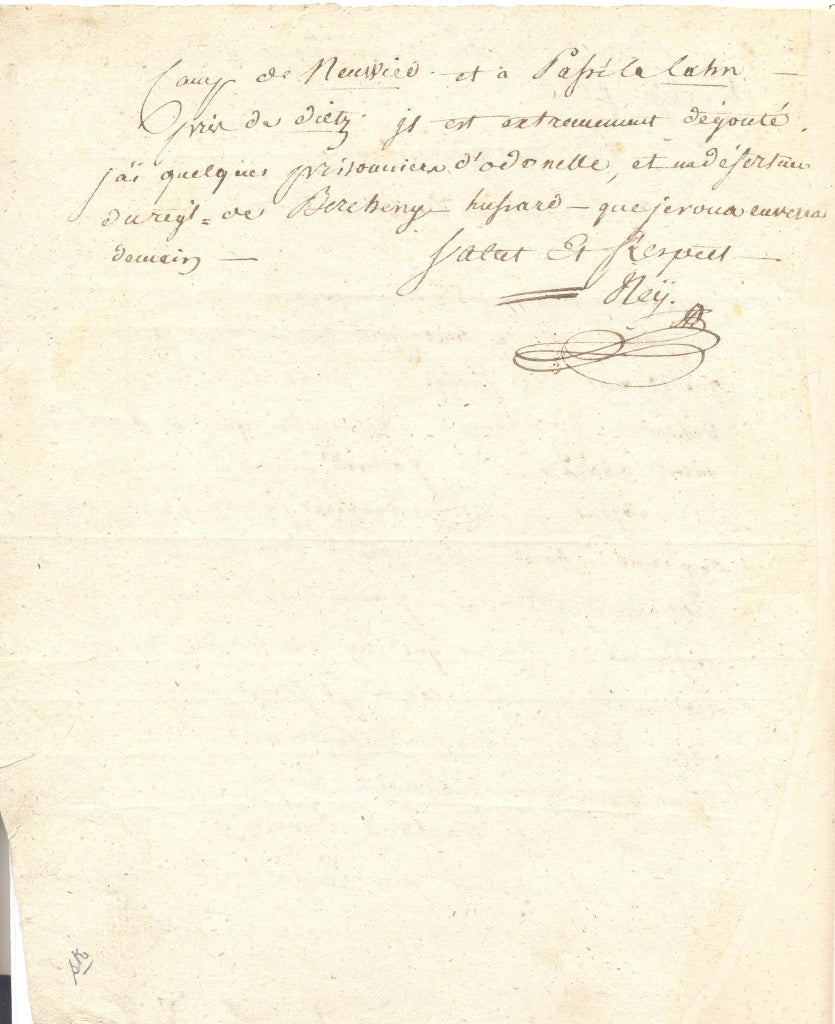 Camp de Neuwied. et a Passé la Lahn —
près de dietz. js est extrêmement dégouté.
j'ai quelques prisonniers d'odonelle, et un déserteur
du régt = de Bercheny hussard — que je vous enverrai
demain — Salut Et Respect —
Neÿ.